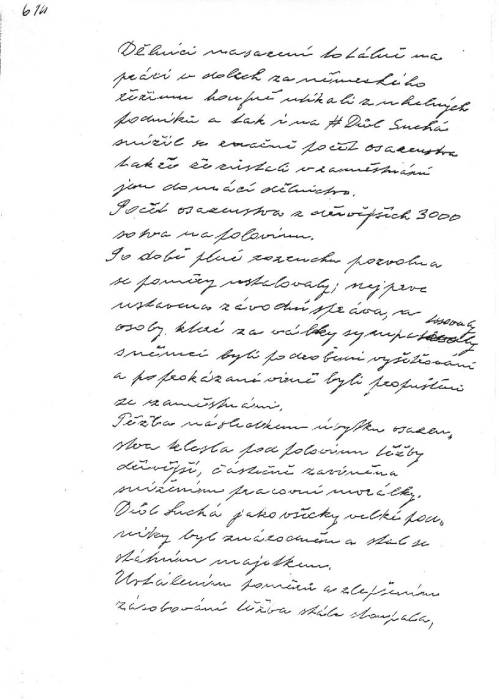 614
Dělníci nasazení totálně na
práci v dolech za německého
režimu houfně utíkali z uhelných
podniků a tak i na # Důl Suchá
snížil se značně počet osazenstva
takže zůstali v zaměstnání
jen domácí dělnictvo.
Počet osazenstva z dřívějších 3000
sotva na polovinu.
Po době plné rozruchu pozvolna
se poměry ustalovaly; nejprve
ustavena závodní správa, a
osoby které za války sympatisovaly
s němci byli podrobeni vyšetřování
a po prokázané vině byli propuštěni
ze zaměstnání.
Těžba následkem úbytku osazen,
stva klesla pod polovinu těžby
dřívější, částečně zaviněna
snížením pracovní morálky.
Důl Suchá jako všecky velké pod,
niky byl znárodněn a stal se
státním majetkem.
Ustálením poměrů a zlepšením
zásobování těžba stále stoupala,